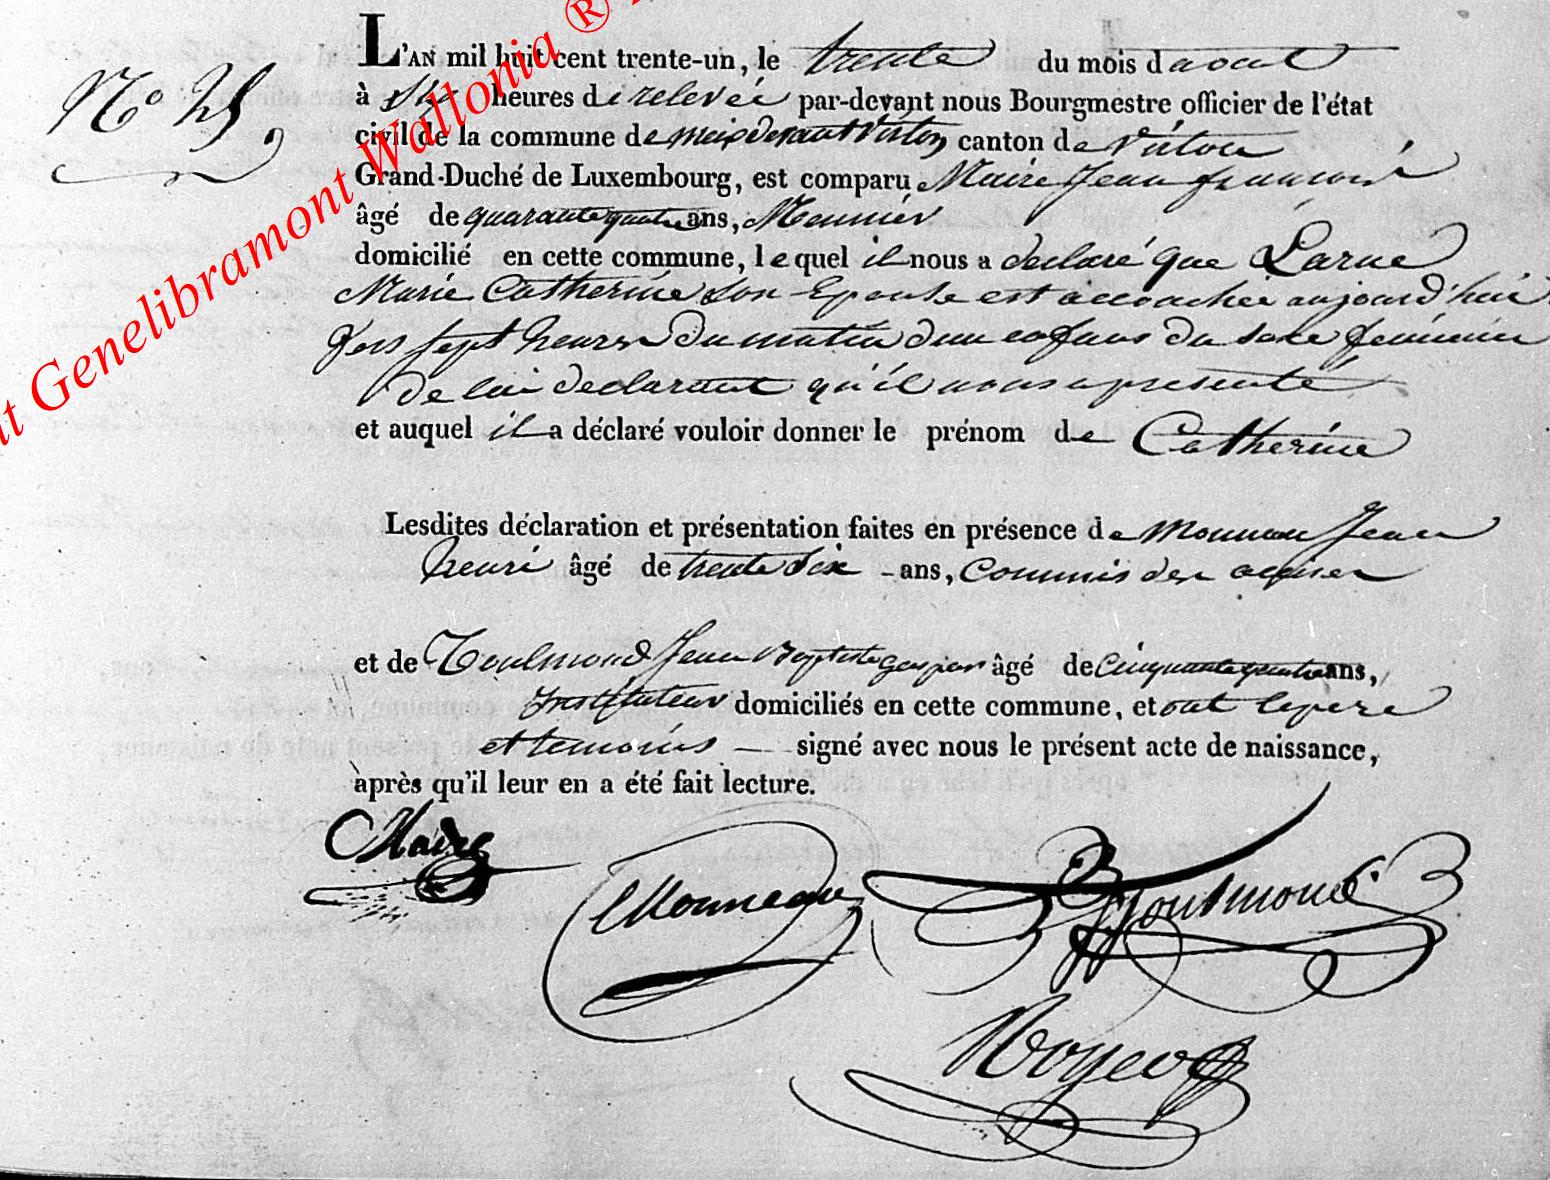 Genelibramont Wallonia ®
N.o 25.
L'AN mil huit cent trente-un, le trente du mois d'aout
à six heures de relevée par-devant nous Bourgmestre officier de l'état
civil de la commune de meix devant Virton canton de Virton
Grand-Duché de Luxembourg, est comparu Maire Jean françois
âgé de quarante quatre ans, Meunier
domicilié en cette commune, lequel il nous a declaré que Larue
Marie Catherine son Epouse est accouchée aujourd'hui
vers sept heures du matin d'un enfans du sexe feminin
de lui declarant qu'il nous a presenté
et auquel il a déclaré vouloir donner le prénom de Catherine
Lesdites déclaration et présentation faites en présence de Monneau Jean
henri âgé de trente six ans, Commis des accises
et de Toulmond Jean Baptiste gaspar âgé de Cinquante quatre ans,
Instituteur domiciliés en cette commune, et ont le pere
et temoins signé avec nous le présent acte de naissance,
après qu'il leur en a été fait lecture.
Maire
Monneau
Toulmond